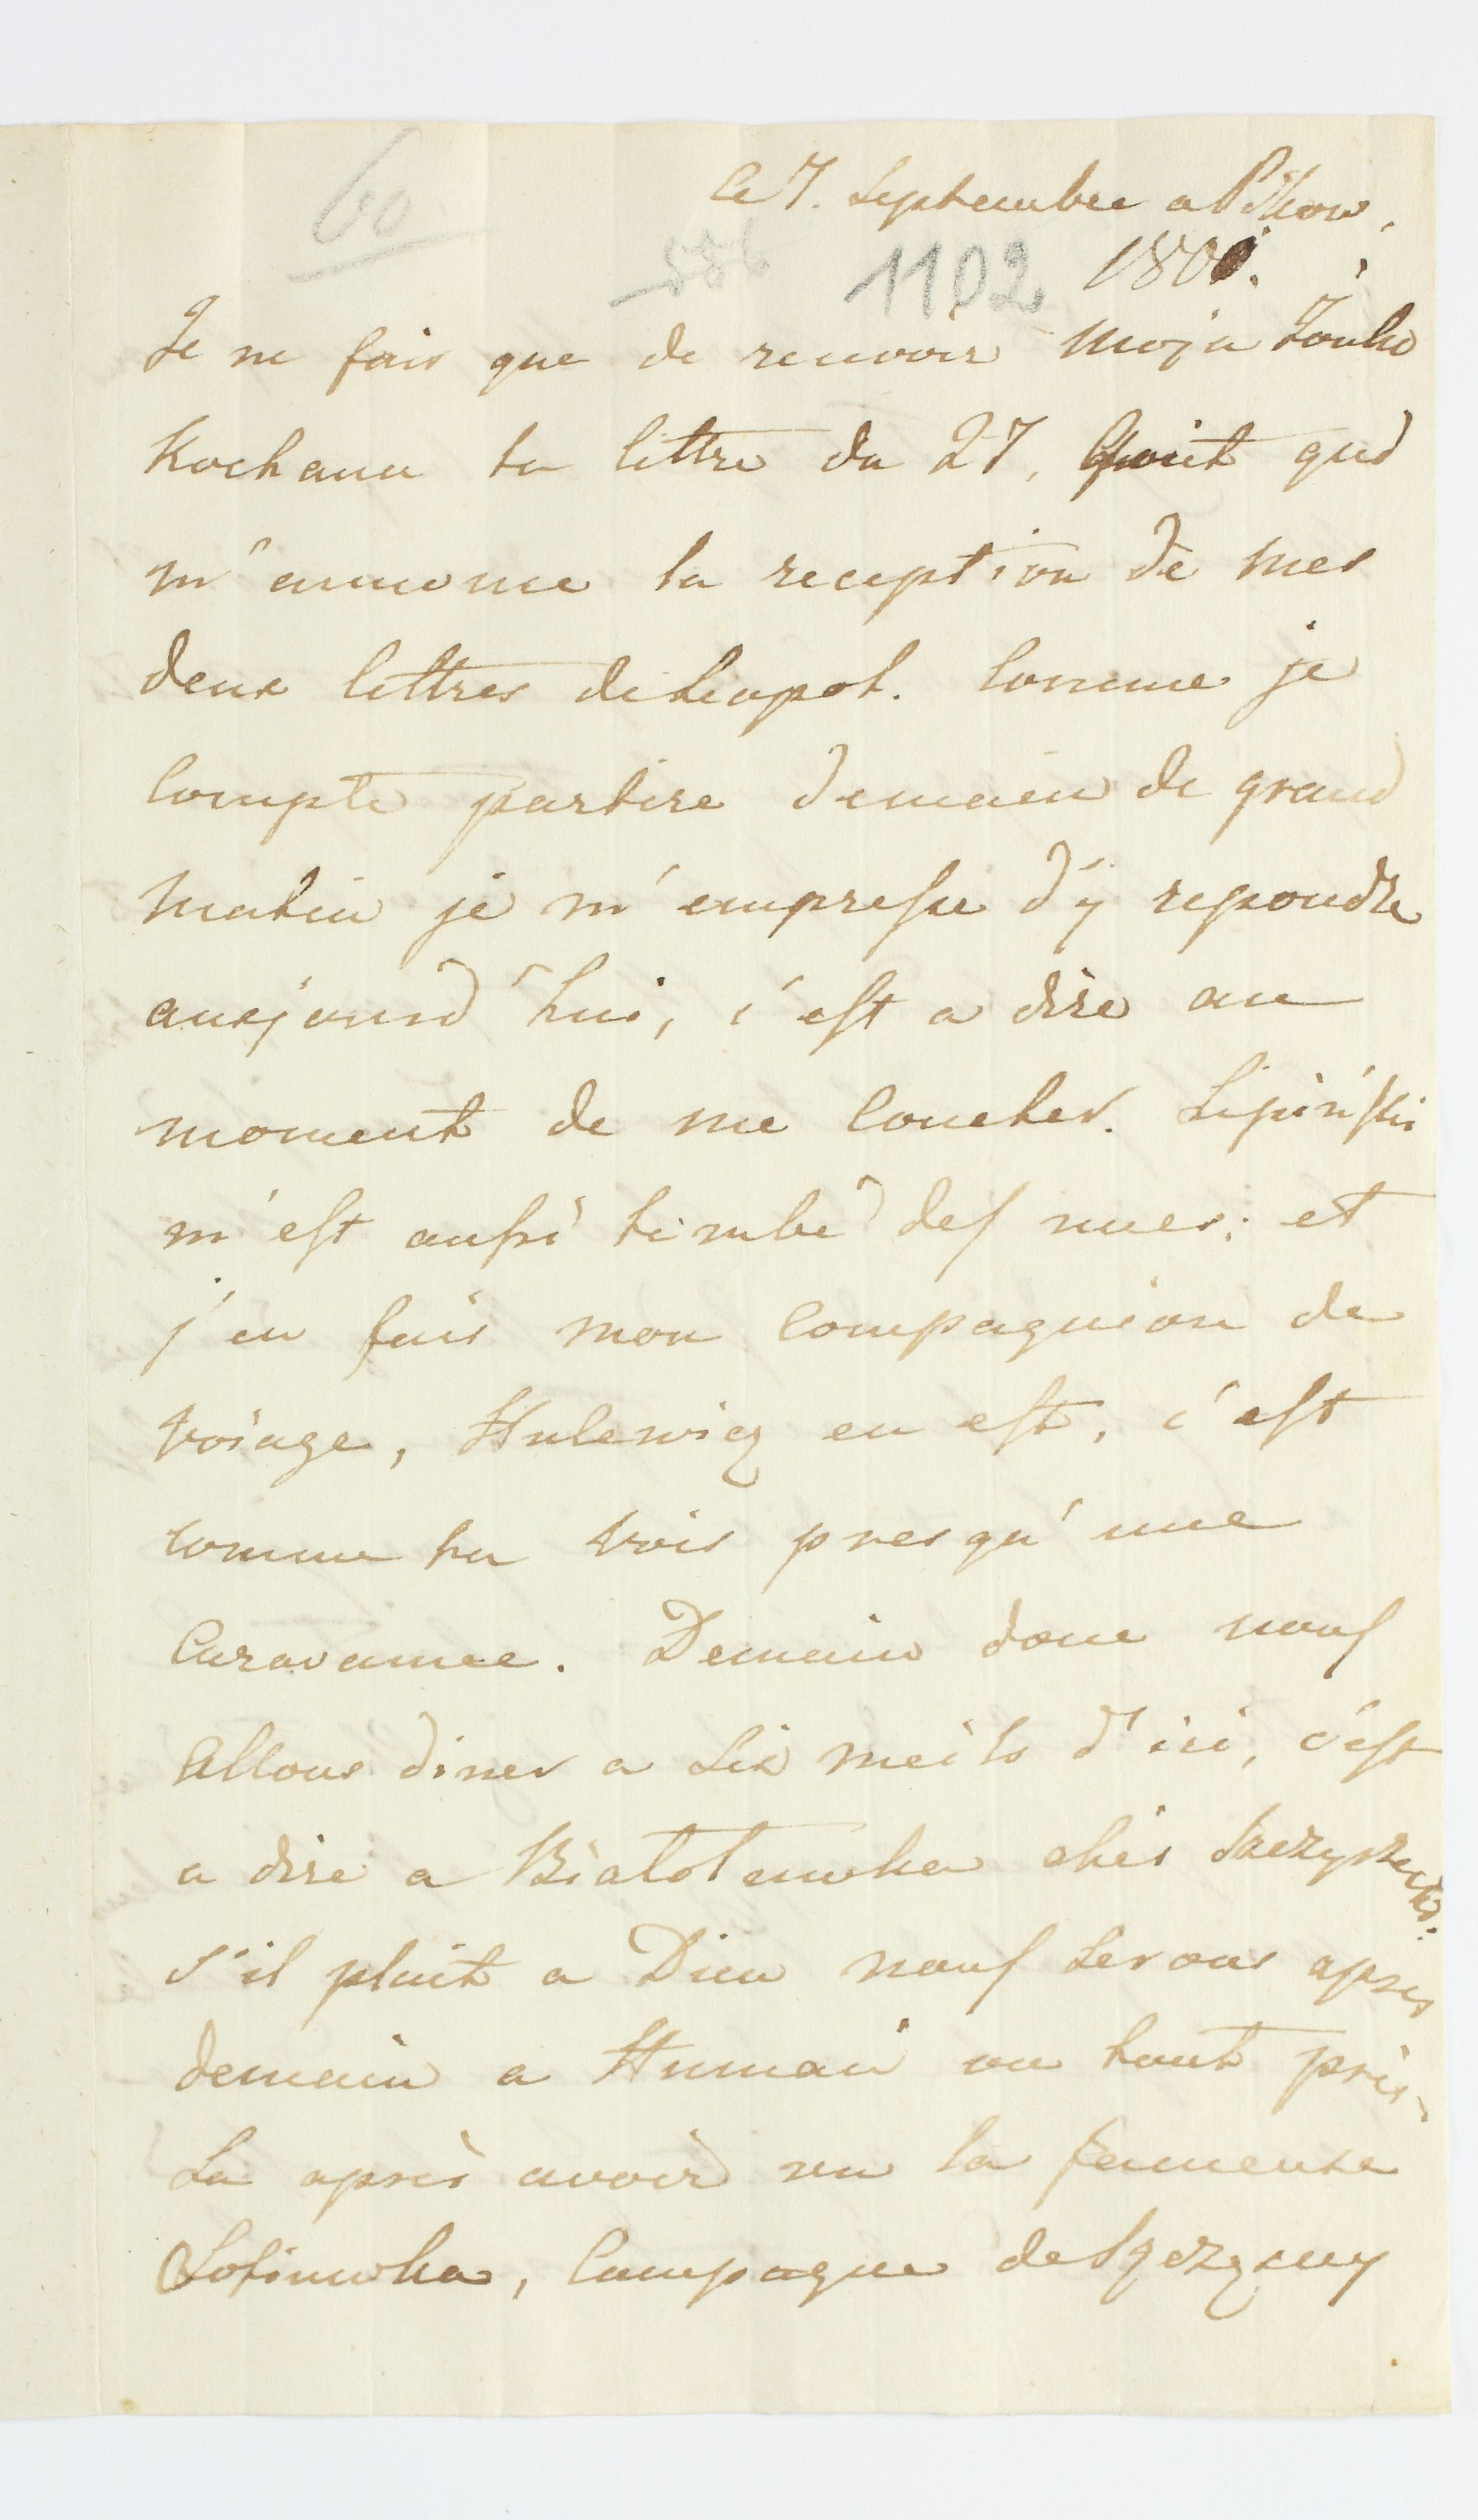 60
le 7. Septembre a Pikow.
556 1102 1801.
Je ne fais que de recevoir moja Zonko
Kochana ta lettre du 27. Aout qui
m'annonce la reception de mes
deux lettres de Leopol. Comme je
Compte partire demain de grand
matin je m'empresse d'y repondre
aujourd'hui, c'est a dire au
moment de me Coucher. Lipiński
m'est aussi tombé des nues; et
j'en fais mon Compagnion de
voiage, Hulewicz en est, c'est
comme tu vois presqu'une
Caravanne. Demain donc nous
Allons diner a Six meils d'ici, c'est
a dire a Bialolowka chés
s'il plait a Dieu nous Serons apres
demain a Humań ou tout prés.
La aprés avoir vu la fameuse
Sofiuwka, Campagne de Szczęsny